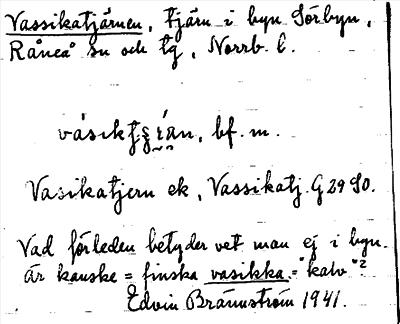 Vassikatjärnen, tjärn i byn Sörbyn,
Råneå sn och tg, Norrb. l.
bf. m.
Vasikatjern ek, Vassikatj. G 29 SO.
Vad förleden betyder vet man ej i byn.
Är kanske = finska vasikka = "kalv"?
Edvin Brännström 1941.